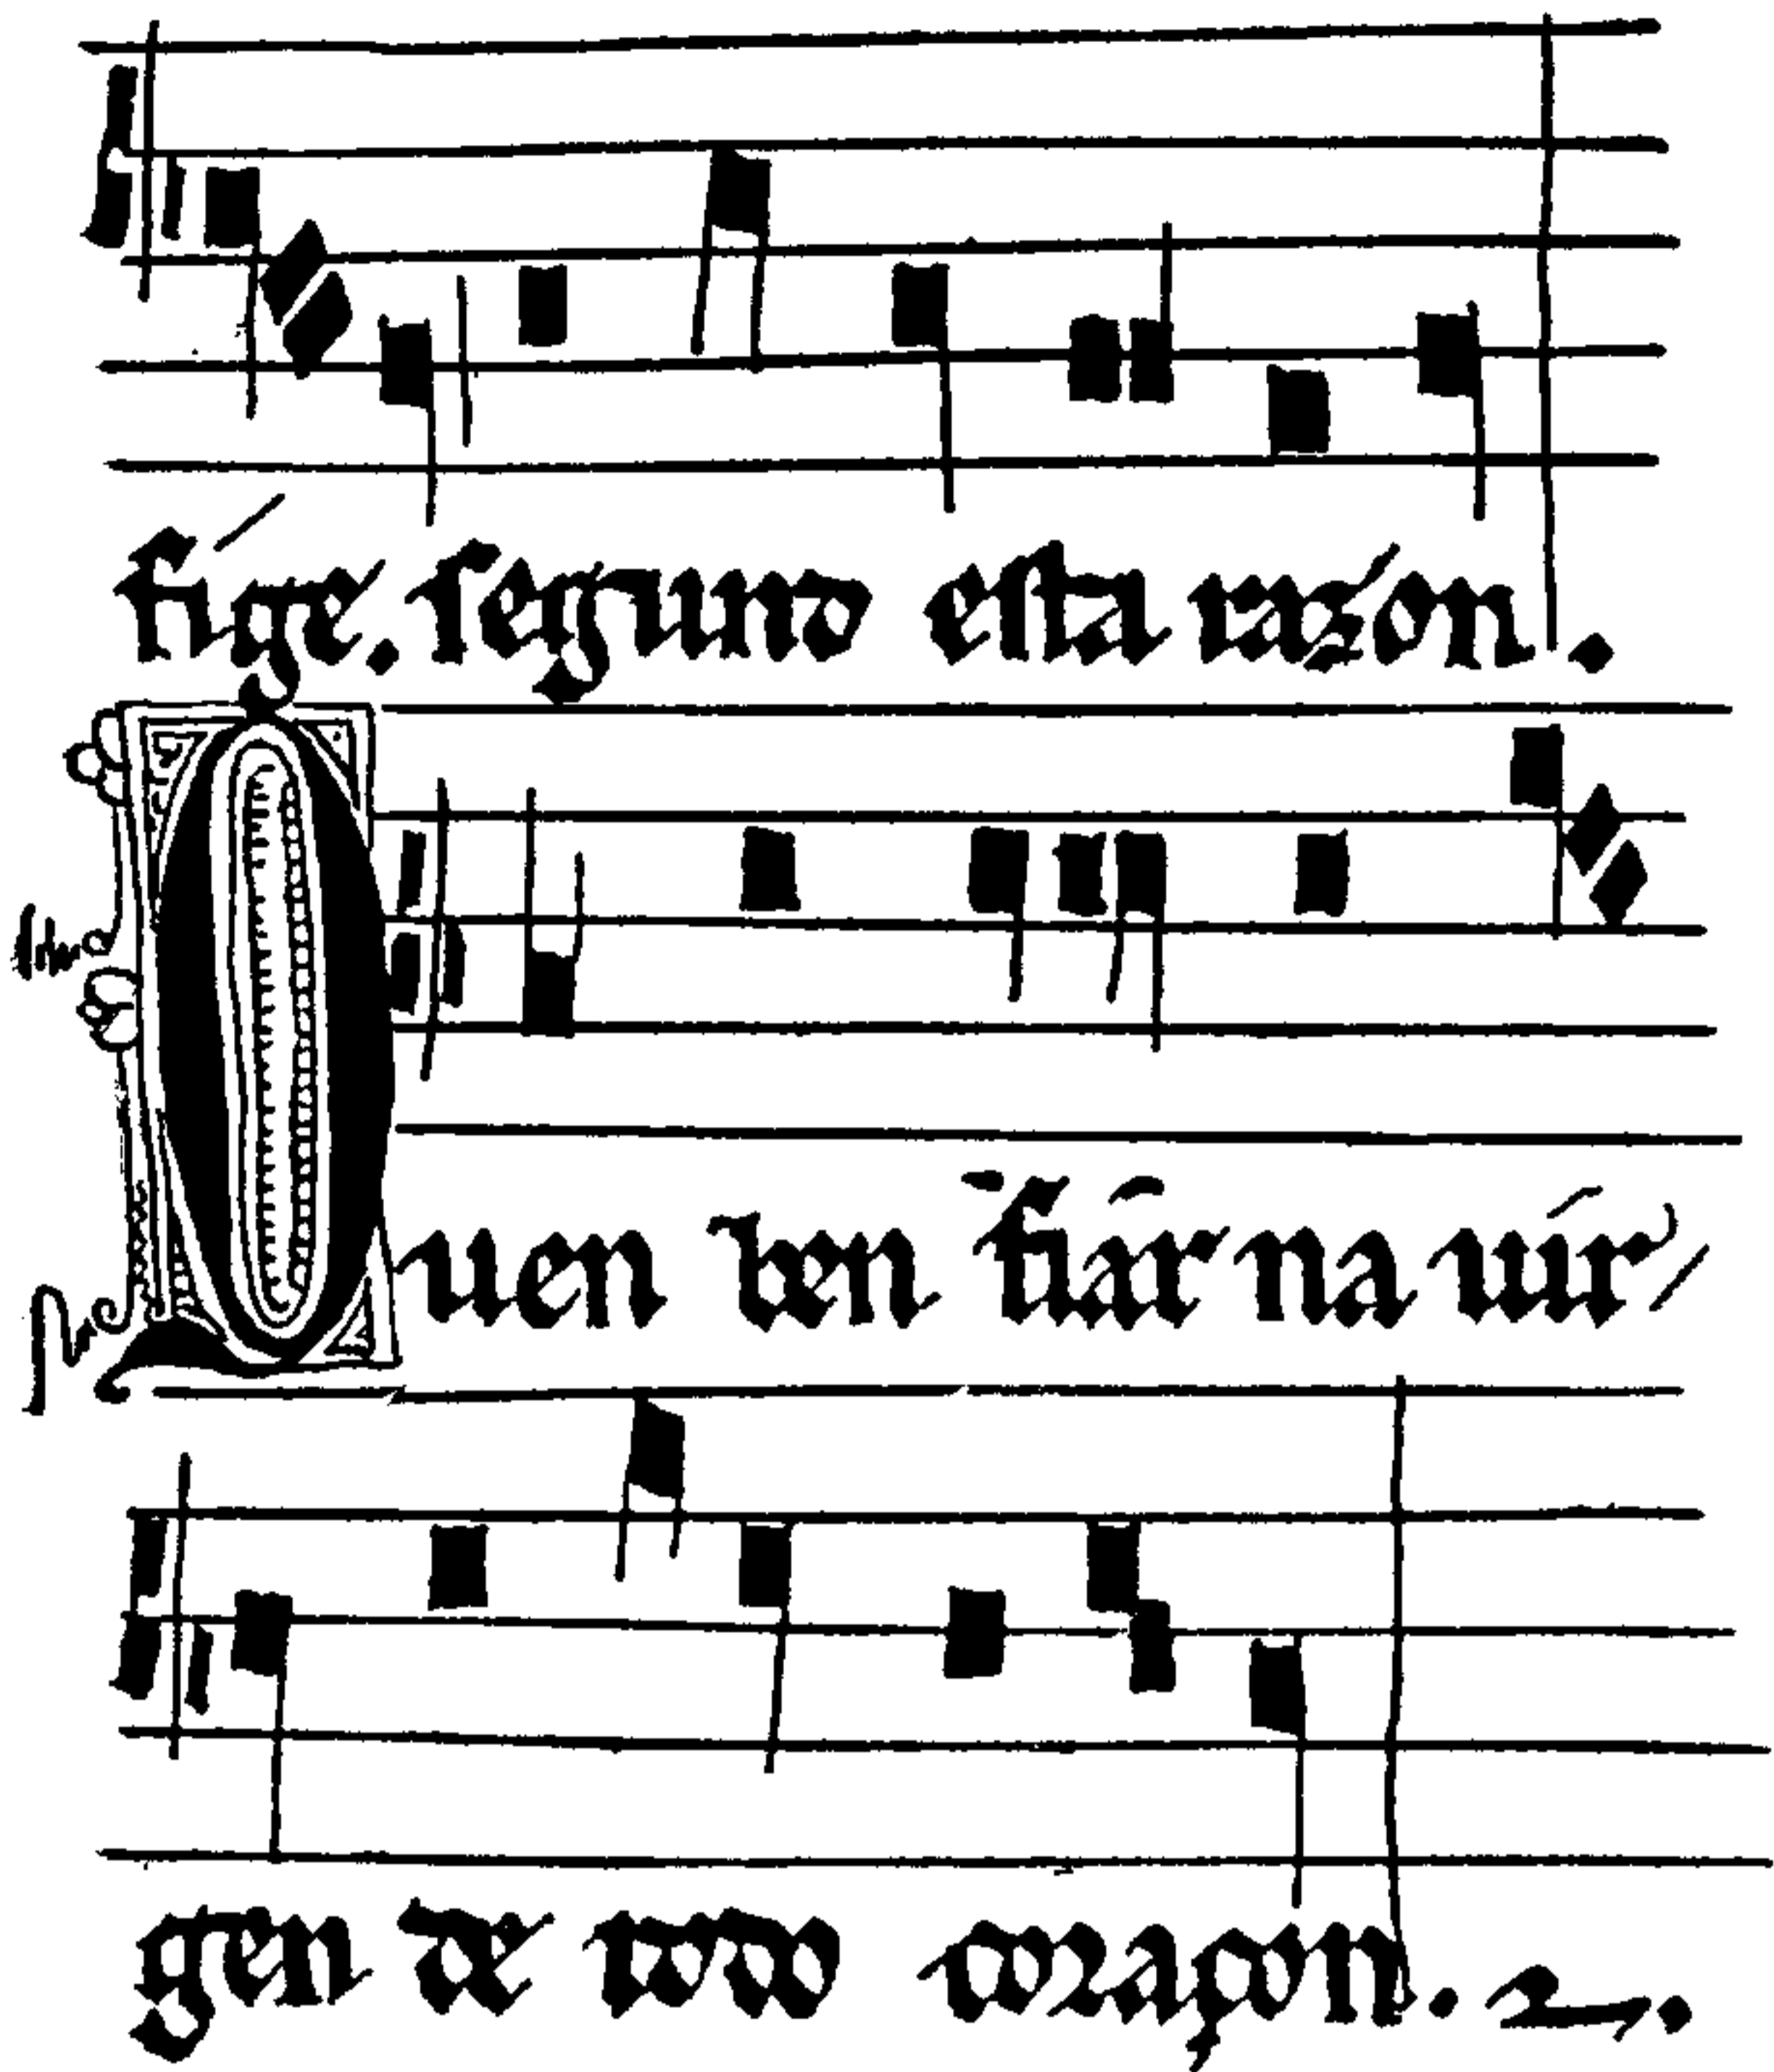 fíge. ſegund eſta razón.
Quen ben fiár na uír
gen de todo coraçon. ⁊.